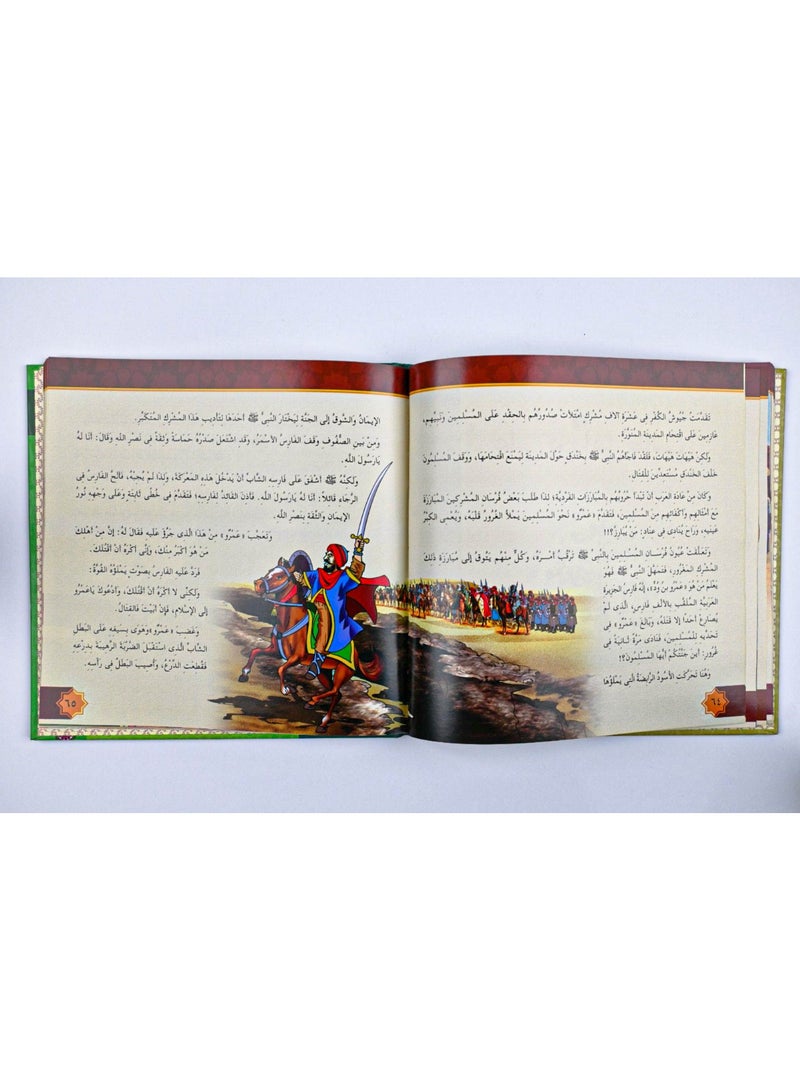 تَقَدَّمَتْ جُيُوشُ الْكُفْرِ فِى عَشَرَةِ آلَافِ مُشْرِكٍ امْتَلَأَتْ صُدُورُهُم بِالحِقْدِ عَلَى الْمُسْلِمِينَ وَنَبِيِّهِم،
عَازِمِينَ عَلَى اقْتِحَامِ المَدِينَةِ المُنَوَّرَةِ.
وَلَكِنْ هَيْهَاتَ هَيْهَاتَ، فَلَقَدْ فَاجَأَهُمُ النَّبِىُّ ﷺ بِخَنْدَقٍ حَوْلَ المَدِينَةِ لِيَمْنَعَ اقْتِحَامَهَا، وَوَقَفَ المُسْلِمُونَ
خَلْفَ الخَنْدَقِ مُسْتَعِدِّينَ لِلْقِتَالِ.
وَكَانَ مِنْ عَادَةِ العَرَبِ أَنْ تَبْدَأَ حُرُوبُهُم بِالمُبَارَزَاتِ الفَرْدِيَّةِ؛ لِذَا طَلَبَ بَعْضُ فُرْسَانِ المُشْرِكِينَ المُبَارَزَةَ
مَعَ أَمْثَالِهِم وَأَكْفَائِهِم مِنَ المُسْلِمِينَ، فَتَقَدَّمَ «عَمْرُو» نَحْوَ المُسْلِمِينَ يَمْلَأُ الغُرُورُ قَلْبَهُ، وَيُعْمِى الكِبْرُ
عَيْنَيْهِ، وَرَاحَ يُنَادِى فِى عِنَادٍ: مَنْ يُبَارِزُ؟!!
وَتَعَلَّقَتْ عُيُونُ فُرْسَانِ المُسْلِمِينَ بِالنَّبِىِّ ﷺ تَرْقُبُ أَمْرَهُ، وَكُلٌّ مِنْهُم يَتُوقُ إِلَى مُبَارَزَةِ ذَلِكَ
المُشْرِكِ المَغْرُورِ، فَتَمَهَّلَ النَّبِىُّ ﷺ فَهُوَ
يَعْلَمُ مَنْ هُوَ «عَمْرُو بن وُدٍّ»، إِنَّهُ فَارِسُ الجَزِيرَةِ
العَرَبِيَّةِ المُلَقَّبُ بِالأَلْفِ فَارِسٍ، الَّذِى لَمْ
يُصَارِعْ أَحَدًا إِلَّا قَتَلَهُ، وَبَالَغَ «عَمْرُو» فِى
تَحَدِّيهِ لِلْمُسْلِمِينَ، فَنَادَى مَرَّةً ثَانِيَةً فِى
غُرُورٍ: أَيْنَ جَنَّتُكُم أَيُّهَا المُسْلِمُونَ؟!
وَهُنَا تَحَرَّكَتِ الأُسُودُ الرَّابِضَةُ الَّتِى يَمْلَؤُهَا
٦٤
الإِيمَانُ وَالشَّوْقُ إِلَى الجَنَّةِ لِيَخْتَارَ النَّبِىُّ ﷺ أَحَدَهَا لِتَأْدِيبِ هَذَا المُشْرِكِ المُتَكَبِّرِ.
وَمِنْ بَيْنِ الصُّفُوفِ وَقَفَ الفَارِسُ الأَسْمَرُ، وَقَدِ اشْتَعَلَ صَدْرُهُ حَمَاسَةً وَثِقَةً فِى نَصْرِ اللهِ وَقَالَ: أَنَا لَهُ
يَا رَسُولَ اللَّهِ.
وَلَكِنَّهُ ﷺ أَشْفَقَ عَلَى فَارِسِهِ الشَّابِّ أَنْ يَدْخُلَ هَذِهِ المَعْرَكَةَ، وَلِذَا لَمْ يُجِبْهُ، فَأَلَحَّ الفَارِسُ فِى
الرَّجَاءِ قَائِلاً: أَنَا لَهُ يَا رَسُولَ اللَّهِ. فَأَذِنَ القَائِدُ لِفَارِسِهِ، فَتَقَدَّمَ فِى خُطًى ثَابِتَةٍ وَعَلَى وَجْهِهِ نُورُ
الإِيمَانِ وَالثِّقَةِ بِنَصْرِ اللَّهِ.
وَتَعَجَّبَ «عَمْرُو» مِنْ هَذَا الَّذِى جَرُؤَ عَلَيْهِ فَقَالَ لَهُ: إِنَّ مِنْ أَهْلِكَ
مَنْ هُوَ أَكْبَرُ مِنْكَ، وَإِنِّى أَكْرَهُ أَنْ أَقْتُلَكَ.
فَرَدَّ عَلَيْهِ الفَارِسُ بِصَوْتٍ يَمْلَؤُهُ القُوَّةُ:
وَلَكِنِّى لَا أَكْرَهُ أَنْ أَقْتُلَكَ، وَأَدْعُوكَ يَا عَمْرُو
إِلَى الإِسْلَامِ، فَإِنْ أَبَيْتَ فَالقِتَالُ.
وَغَضِبَ «عَمْرُو» وَهَوَى بِسَيْفِهِ عَلَى البَطَلِ
الشَّابِّ الَّذِى اسْتَقْبَلَ الضَّرْبَةَ الرَّهِيبَةَ بِدِرْعِهِ
فَقَطَعَتِ الدِّرْعَ، وَأُصِيبَ البَطَلُ فِى رَأْسِهِ.
٦٥